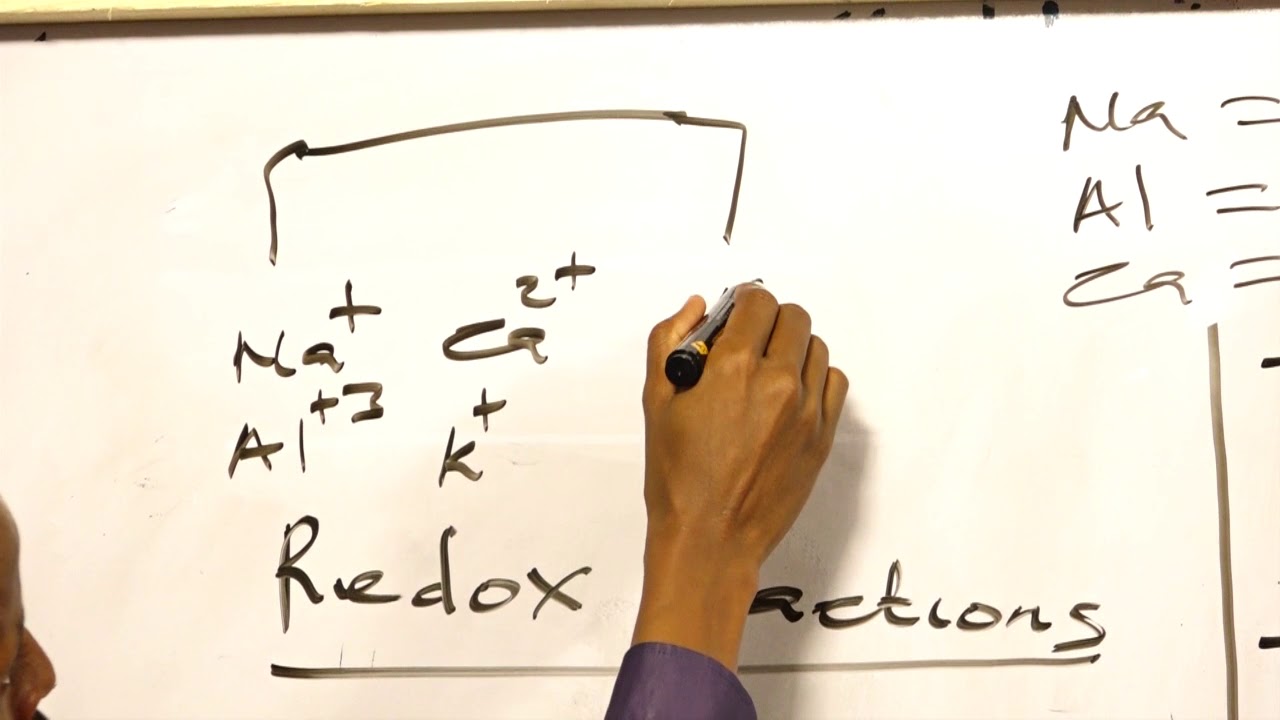 Na⁺ Ca²⁺
Al⁺³ K⁺
Redox actions
Na =
Al =
Ca =